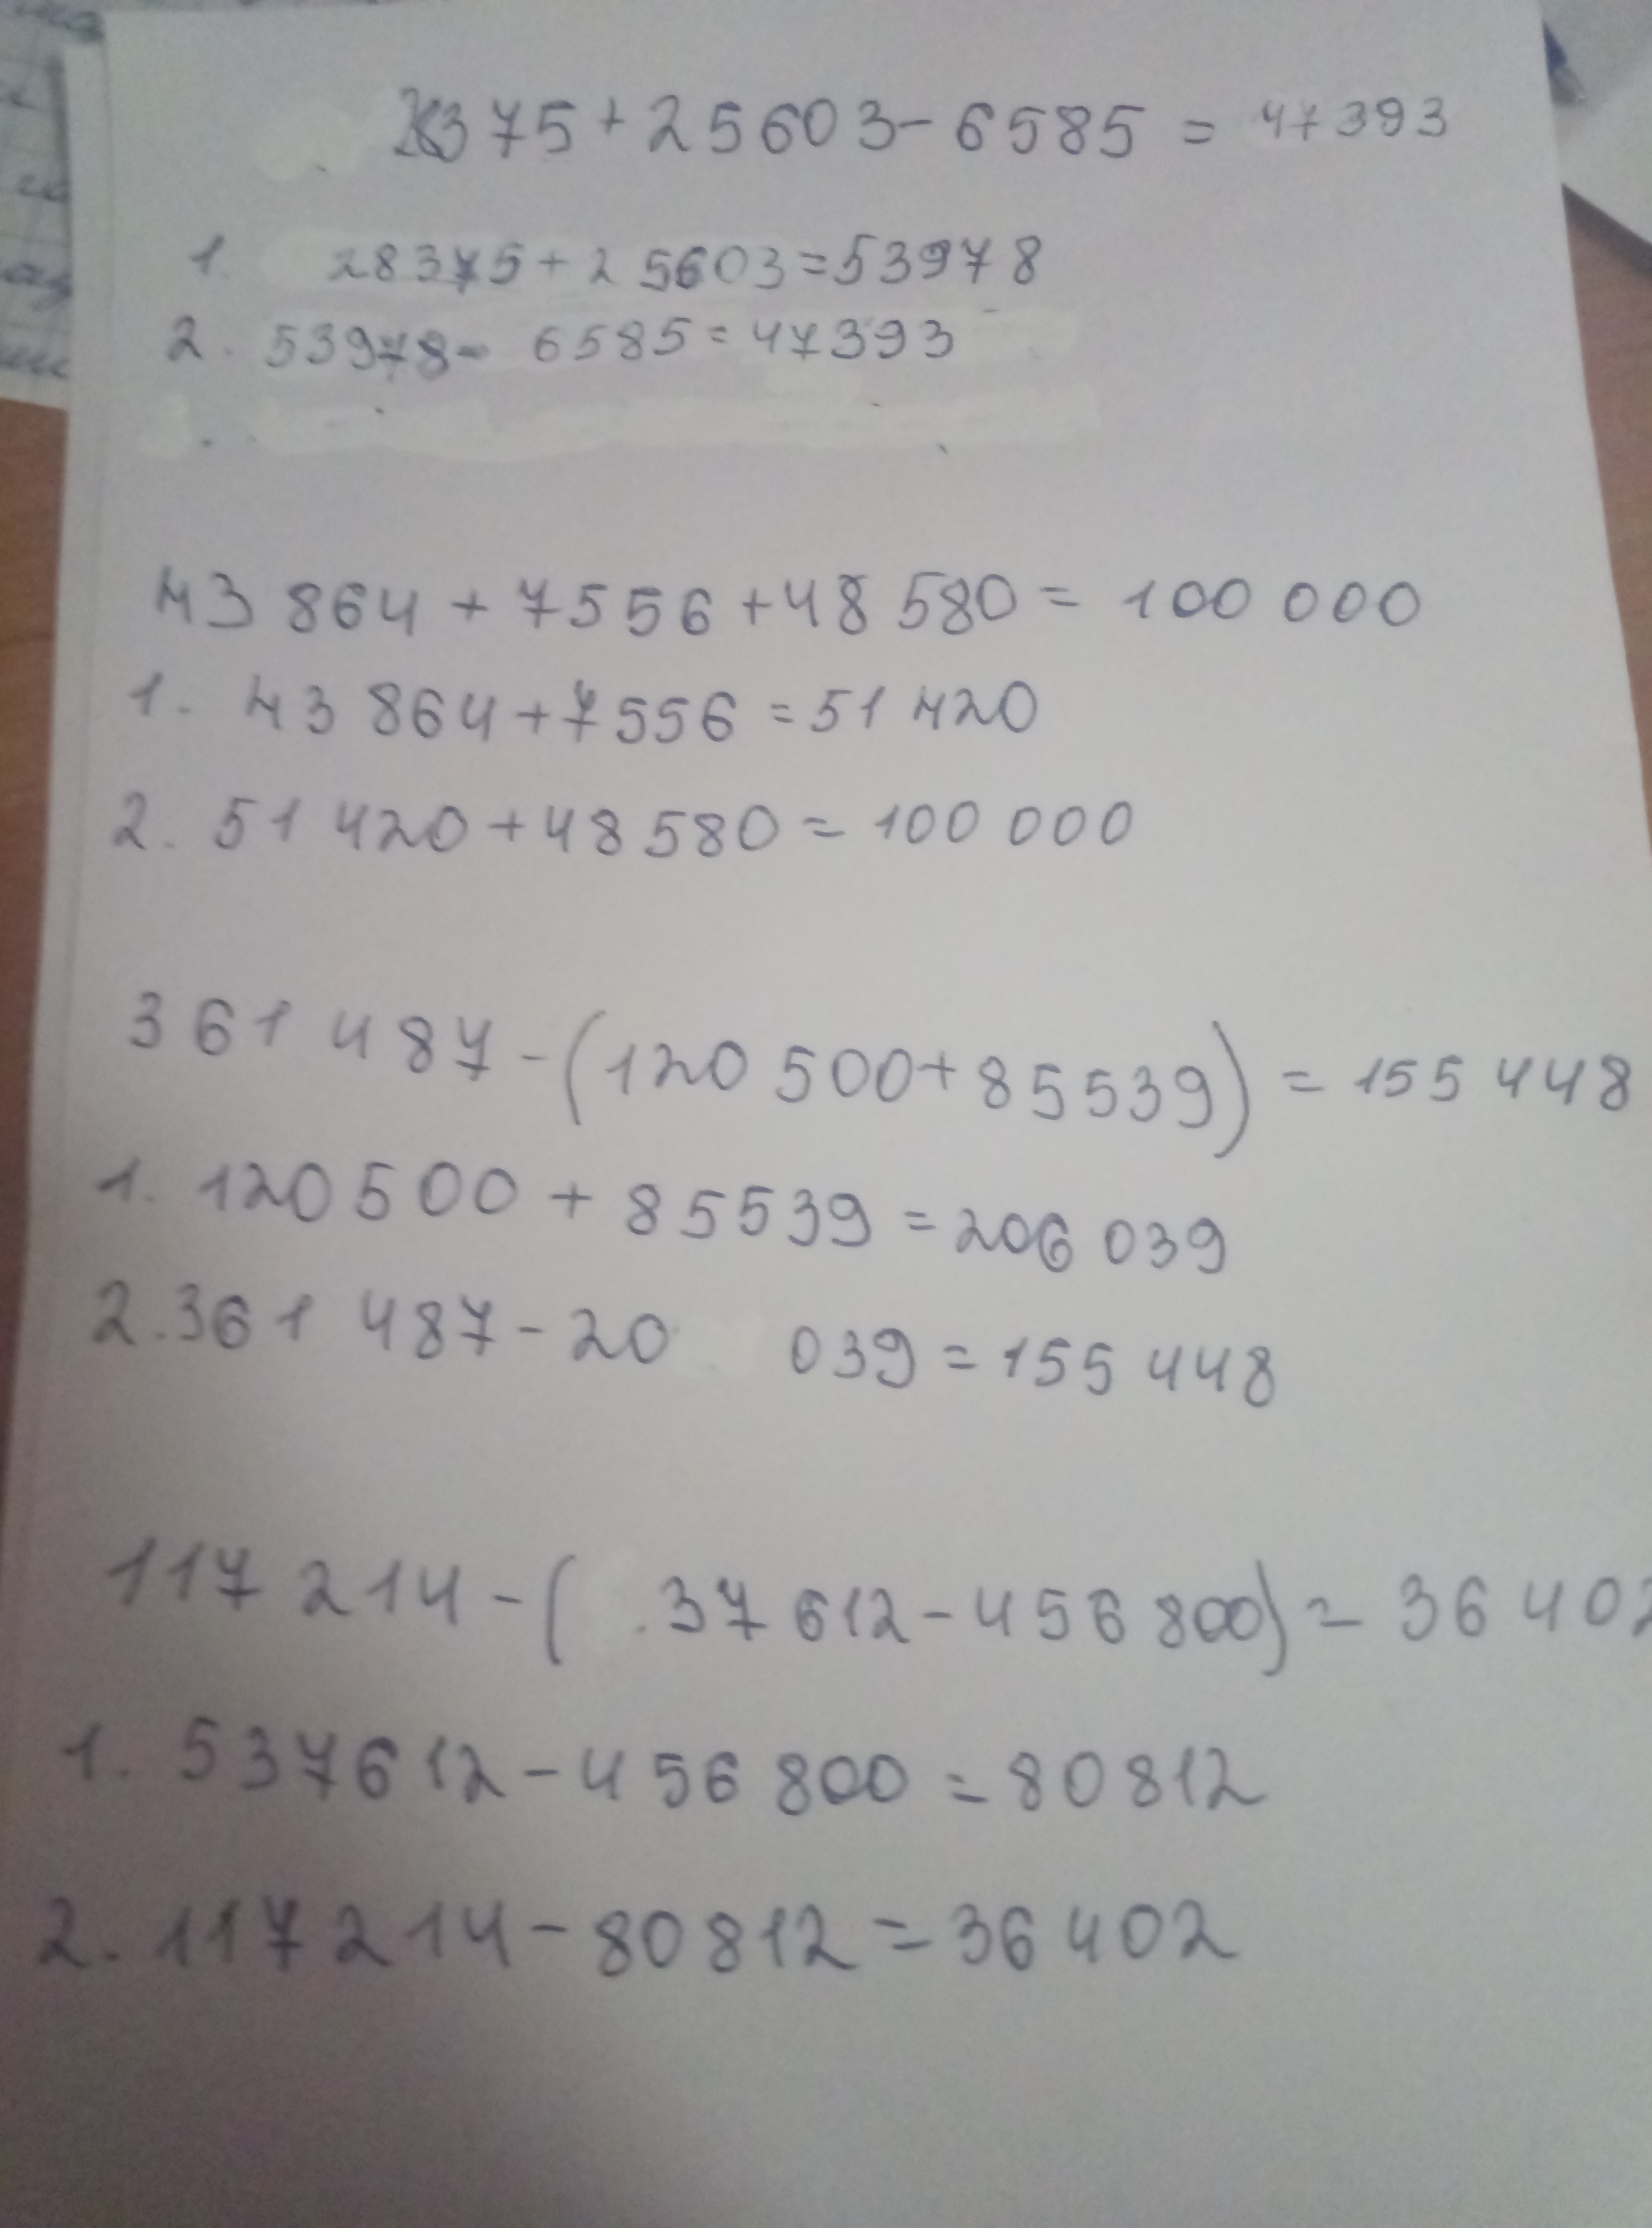 28375 + 25603 - 6585 = 47393
1. 28375 + 25603 = 53978
2. 53978 - 6585 = 47393
43 864 + 7556 + 48 580 = 100 000
1. 43 864 + 7556 = 51 420
2. 51 420 + 48 580 = 100 000
361 487 - (120 500 + 85539) = 155 448
1. 120 500 + 85539 = 206 039
2. 361 487 - 20 039 = 155 448
117 214 - ( 37 612 - 456 800) = 36 402
1. 537612 - 456 800 = 80812
2. 117214 - 80812 = 36 402